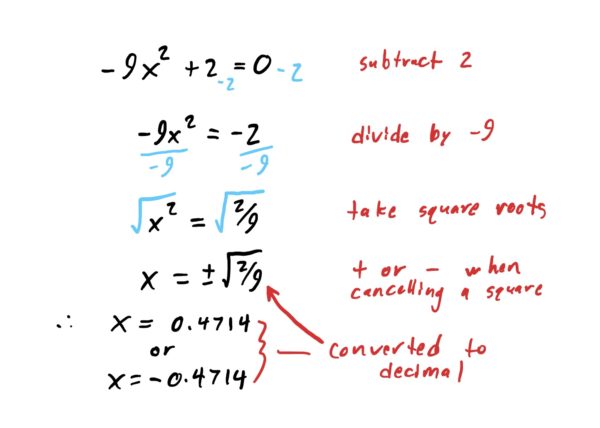 -9x² + 2 -2 = 0 -2 subtract 2
-9x²/-9 = -2/-9 divide by -9
√x² = √2/9 take square roots
x = ±√2/9 + or - when
cancelling a square
∴ x = 0.4714
or
x = -0.4714
converted to
decimal